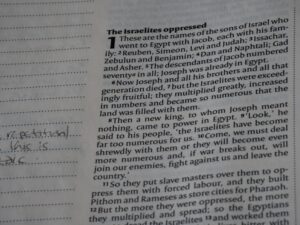 this is
The Israelites oppressed
1 These are the names of the sons of Israel who
went to Egypt with Jacob, each with his fam-
ily: ²Reuben, Simeon, Levi and Judah; ³Issachar,
Zebulun and Benjamin; ⁴Dan and Naphtali; Gad
and Asher. ⁵The descendants of Jacob numbered
seventyᵃ in all; Joseph was already in Egypt.
⁶Now Joseph and all his brothers and all that
generation died, ⁷but the Israelites were exceed-
ingly fruitful; they multiplied greatly, increased
in numbers and became so numerous that the
land was filled with them.
⁸Then a new king, to whom Joseph meant
nothing, came to power in Egypt. ⁹'Look,' he
said to his people, 'the Israelites have become
far too numerous for us. ¹⁰Come, we must deal
shrewdly with them or they will become even
more numerous and, if war breaks out, will
join our enemies, fight against us and leave the
country.'
¹¹So they put slave masters over them to op-
press them with forced labour, and they built
Pithom and Rameses as store cities for Pharaoh.
¹²But the more they were oppressed, the more
they multiplied and spread; so the Egyptians
dread the Israelites ¹³and worked them